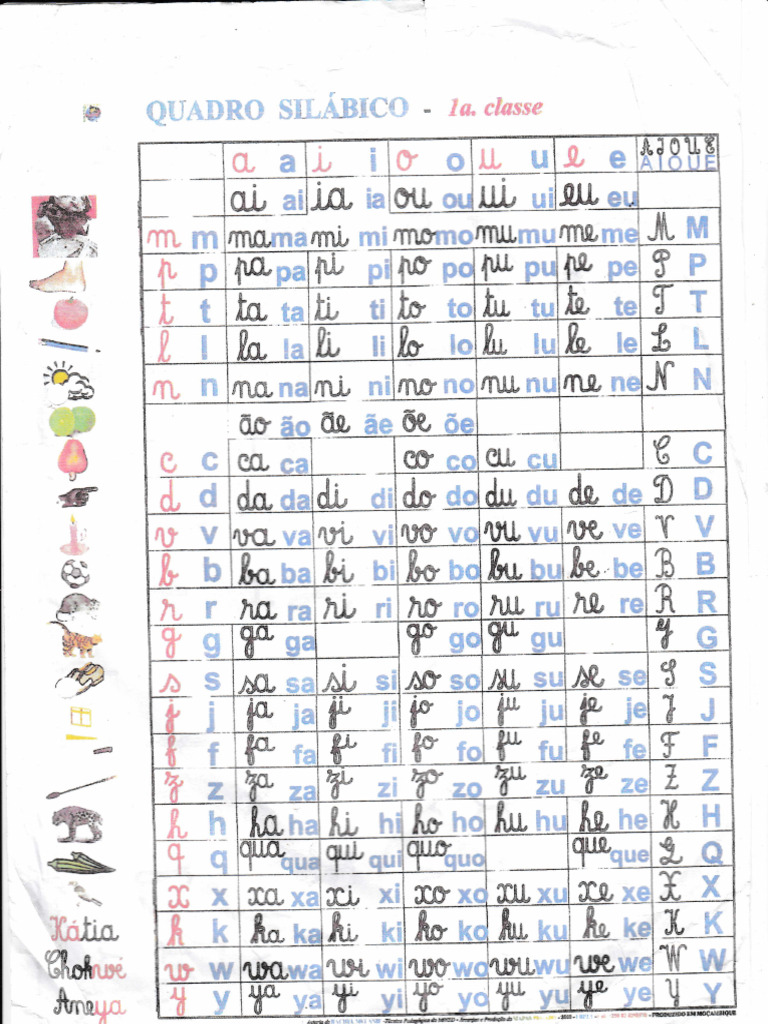 QUADRO SILÁBICO - 1a. classe
a a i i o o u u e e A I O U E
A I O U E
ai ai ia ia ou ou ui ui eu eu
m m ma ma mi mi mo mo mu mu me me M M
p p pa pa pi pi po po pu pu pe pe P P
t t ta ta ti ti to to tu tu te te T T
l l la la li li lo lo lu lu le le L L
n n na na ni ni no no nu nu ne ne N N
ão ão ãe ãe õe õe
c c ca ca co co cu cu C C
d d da da di di do do du du de de D D
v v va va vi vi vo vo vu vu ve ve V V
b b ba ba bi bi bo bo bu bu be be B B
r r ra ra ri ri ro ro ru ru re re R R
g g ga ga go go gu gu G G
s s sa sa si si so so su su se se S S
j j ja ja ji ji jo jo ju ju je je J J
f f fa fa fi fi fo fo fu fu fe fe F F
z z za za zi zi zo zo zu zu ze ze Z Z
h h ha ha hi hi ho ho hu hu he he H H
q q qua qua qui qui quo quo que que Q Q
x x xa xa xi xi xo xo xu xu xe xe X X
Kátia k k ka ka ki ki ko ko ku ku ke ke K K
Chokwé w w wa wa wi wi wo wo wu wu we we W W
Aneya y y ya ya yi yi yo yo yu yu ye ye Y Y
PRODUZIDO EM MOÇAMBIQUE